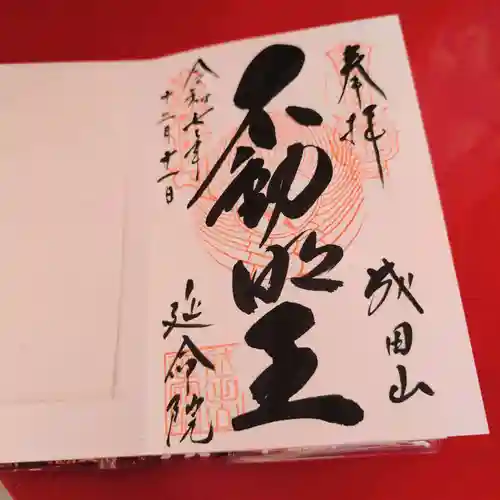 奉拝
成田山
不動明王
令和六年
十二月十一日
延命院